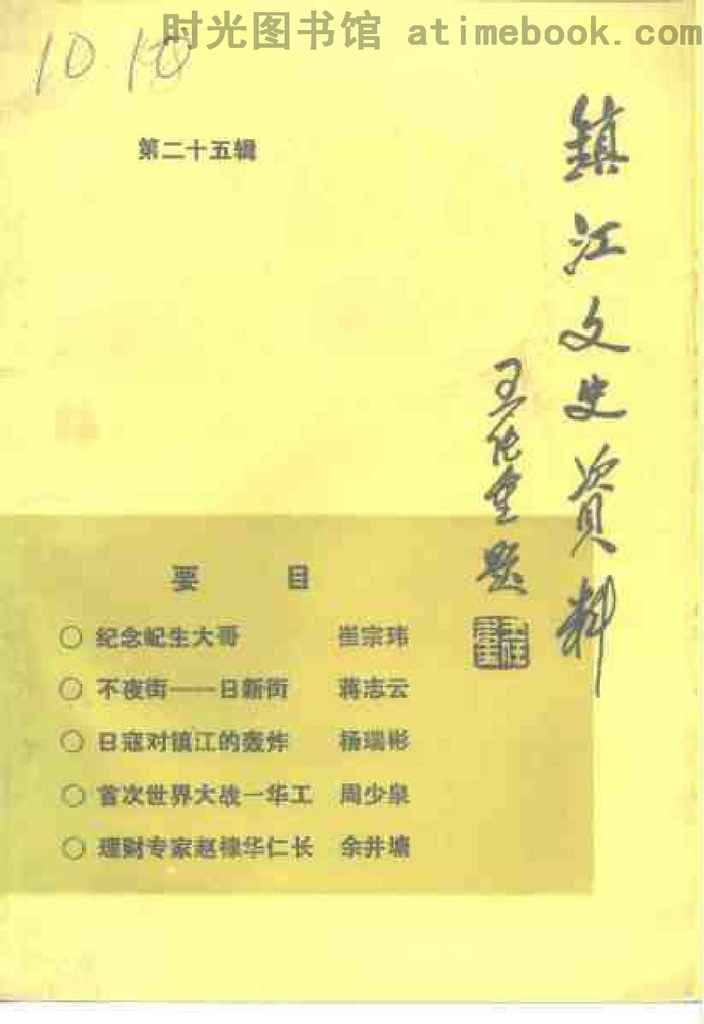 时光图书馆 atimebook.com
10.10
第二十五辑
鎮江文史資料
王仳重题
要 目
○ 纪念屺生大哥 崔宗玮
○ 不夜街——日新街 蒋志云
○ 日寇对镇江的轰炸 杨瑞彬
○ 首次世界大战一华工 周少泉
○ 理财专家赵棣华仁长 余井塘